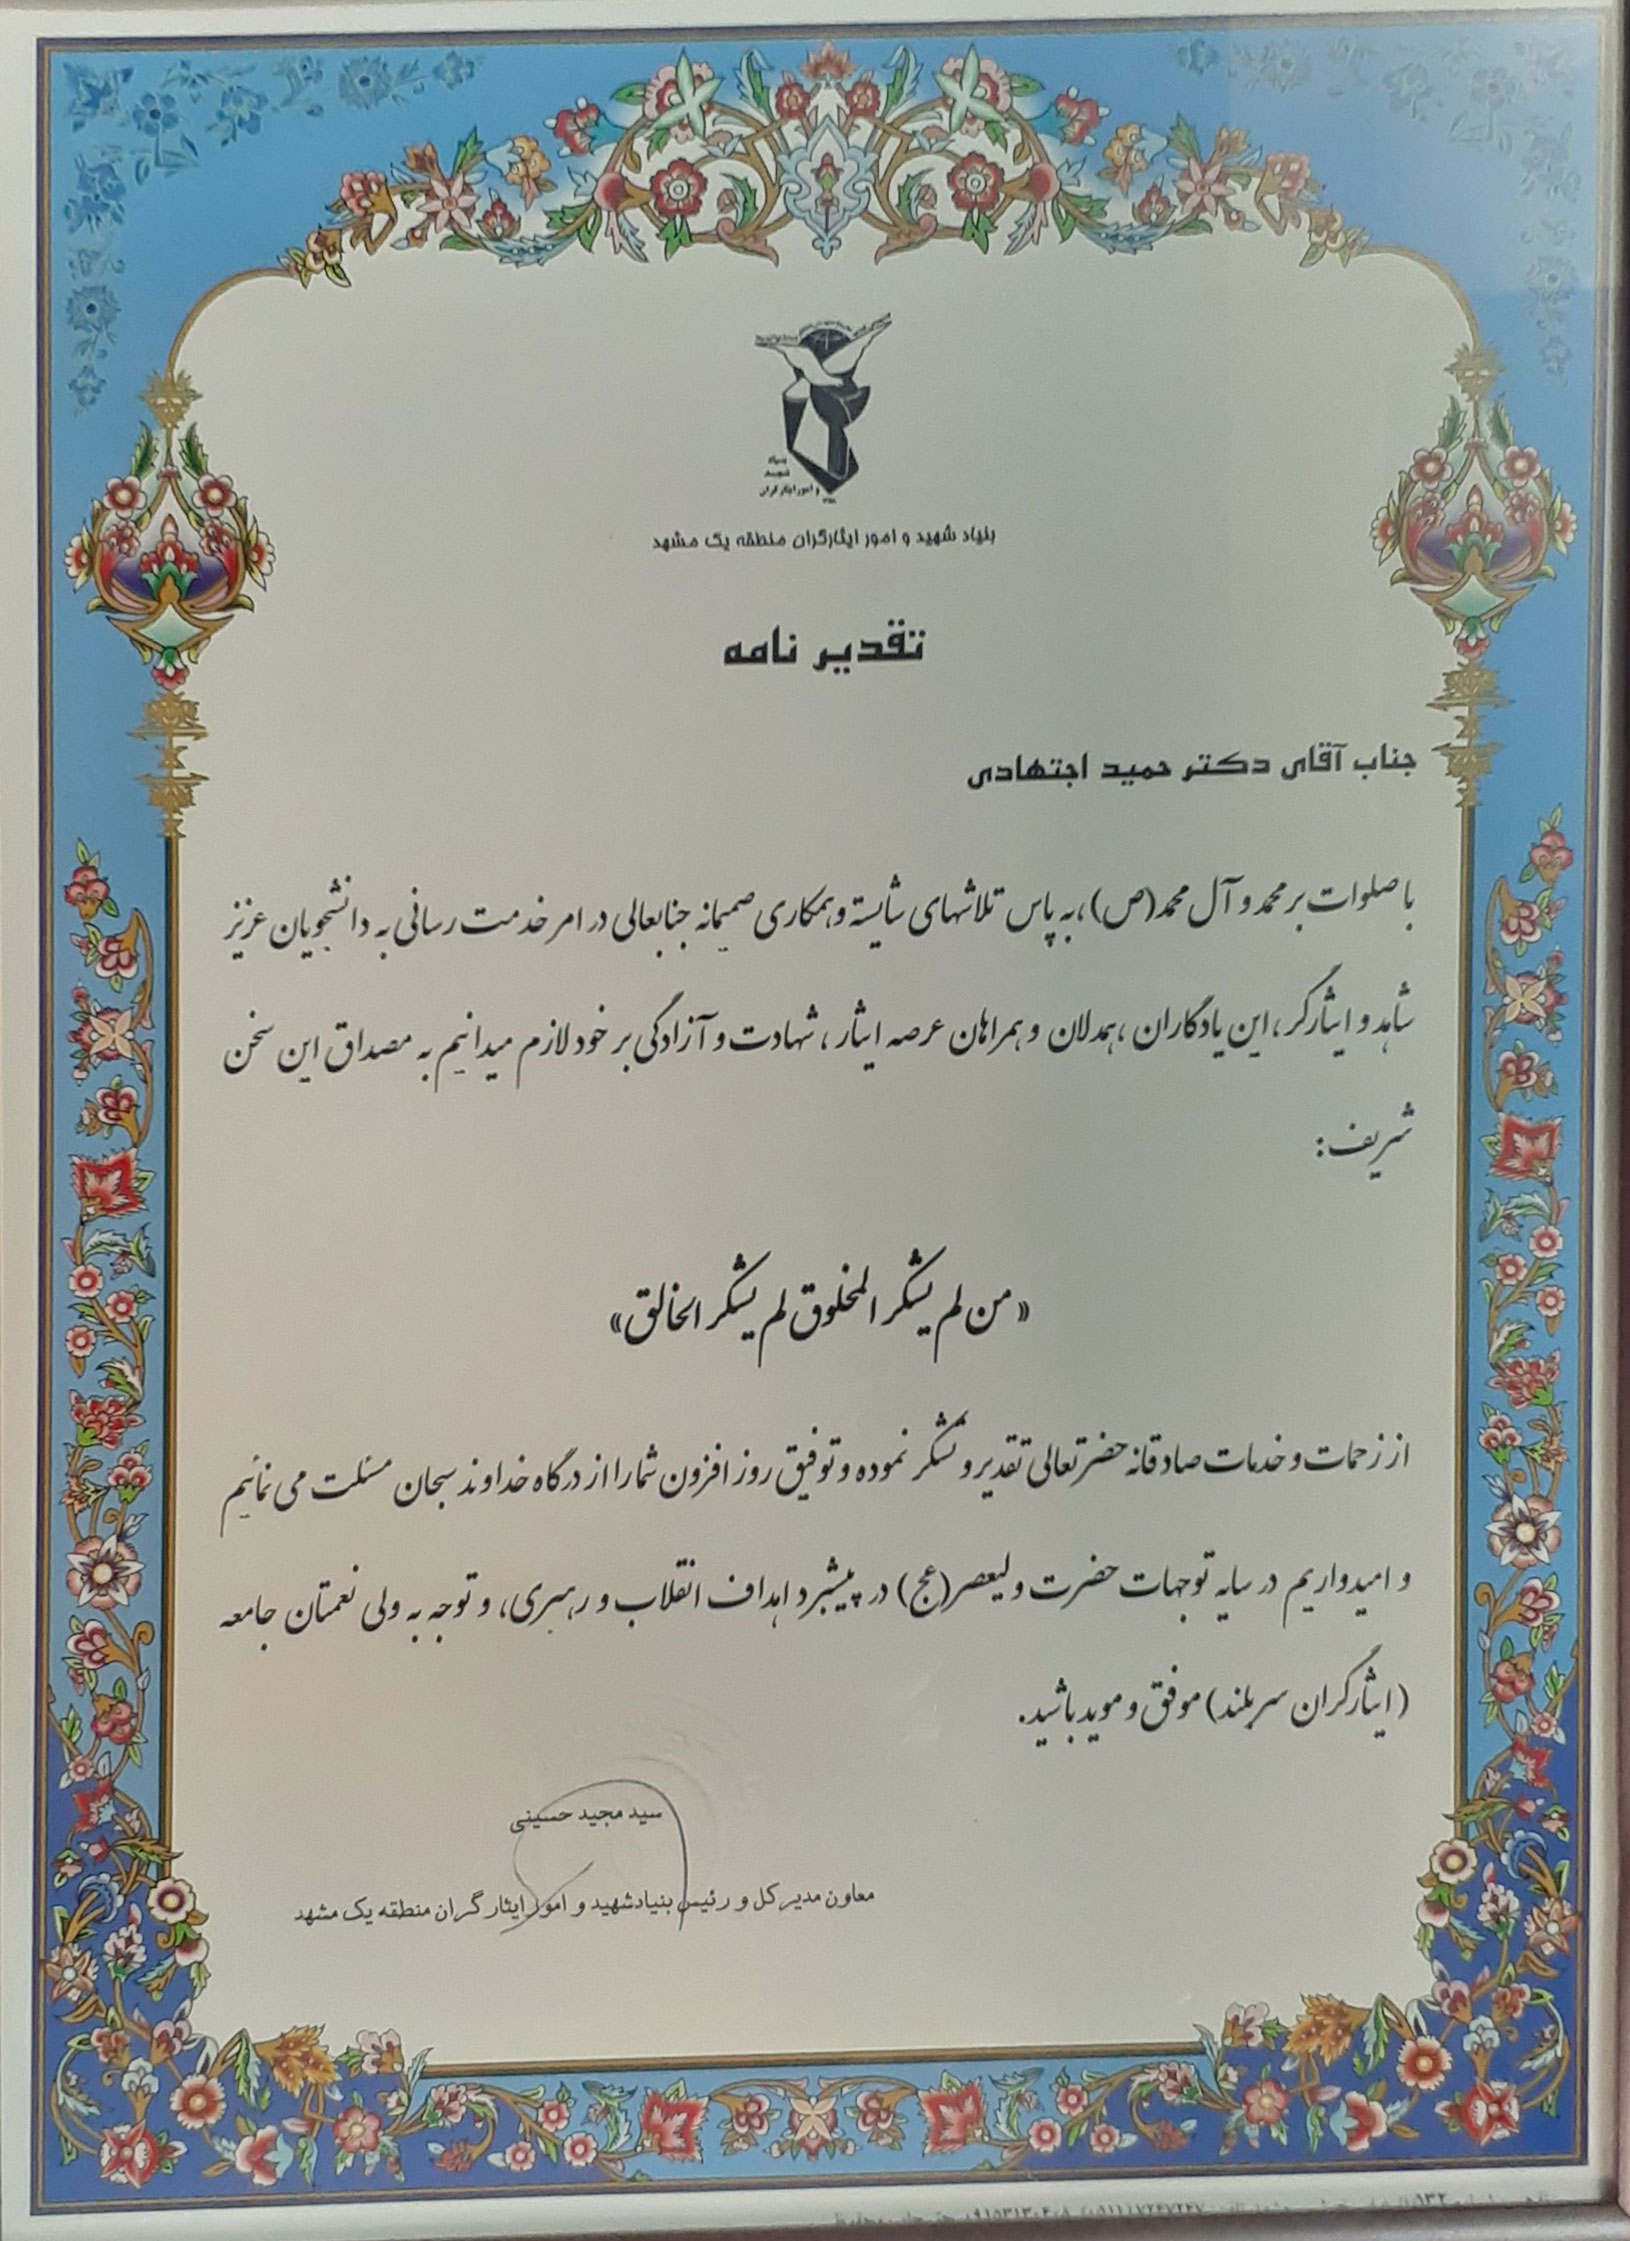 بنیاد
شهید
و امور ایثارگران
بنیاد شهید و امور ایثارگران منطقه یک مشهد
تقدیر نامه
جناب آقای دکتر حمید اجتهادی
با صلوات بر محمد و آل محمد(ص)، به پاس تلاشهای شایسته و همکاری صمیمانه جنابعالی در امر خدمت رسانی به دانشجویان عزیز
شاهد و ایثارگر، این یادگاران ، همدلان و همراهان عرصه ایثار ، شهادت و آزادگی بر خود لازم میدانیم به مصداق این سخن
شریف:
«من لم یشکر المخلوق لم یشکر الخالق»
از زحمات و خدمات صادقانه حضرتعالی تقدیر و تشکر نموده و توفیق روز افزون شما را از درگاه خداوند سبحان مسئلت می نمائیم
و امیدواریم در سایه توجهات حضرت ولیعصر(عج) در پیشبرد اهداف انقلاب و رهبری، و توجه به ولی نعمتان جامعه
(ایثارگران سربلند) موفق و موید باشید.
سید مجید حسینی
معاون مدیر کل و رئیس بنیاد شهید و امور ایثارگران منطقه یک مشهد